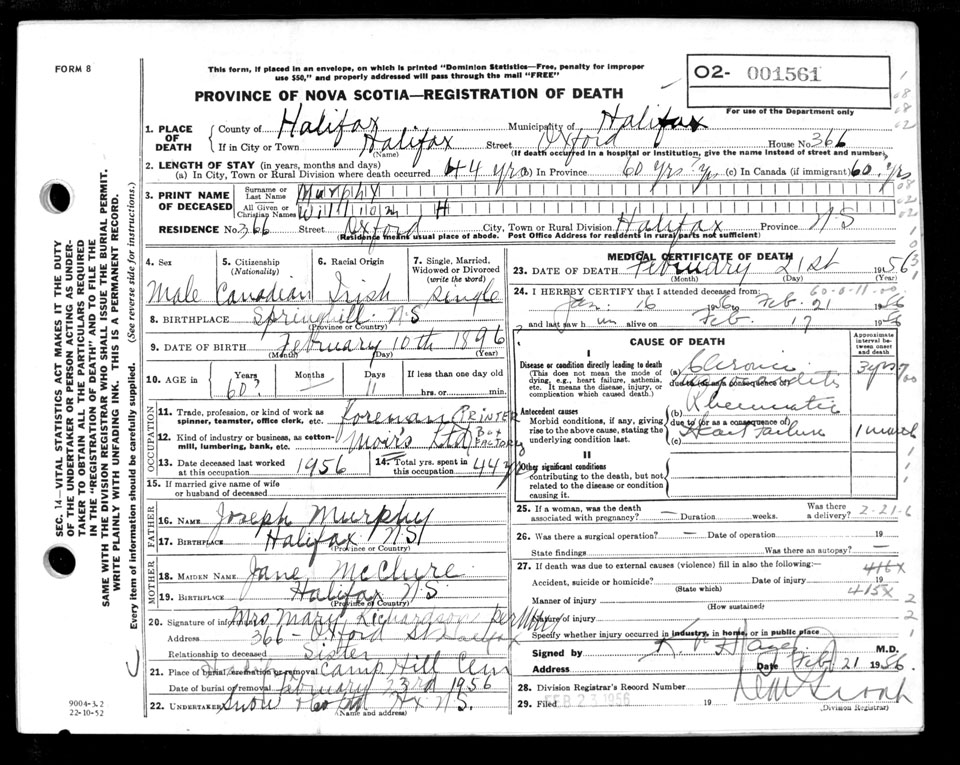 FORM 8
This form, if placed in an envelope, on which is printed "Dominion Statistics—Free, penalty for improper
use $50," and properly addressed will pass through the mail "FREE"
02- 001561
For use of the Department only
PROVINCE OF NOVA SCOTIA—REGISTRATION OF DEATH
1. PLACE OF DEATH County of Halifax Municipality of Halifax
If in City or Town Halifax Street Oxford House No. 366
(Name) (If death occurred in a hospital or institution, give the name instead of street and number)
2. LENGTH OF STAY (in years, months and days)
(a) In City, Town or Rural Division where death occurred 44 yrs (b) In Province 60 yrs ? yrs (c) In Canada (if immigrant) 60 yrs
3. PRINT NAME OF DECEASED Surname or Last Name Murphy
All Given or Christian Names William H
RESIDENCE No. 366 Street Oxford City, Town or Rural Division Halifax Province N.S
(Residence means usual place of abode. Post Office Address for residents in rural parts not sufficient)
4. Sex Male
5. Citizenship (Nationality) Canadian
6. Racial Origin Irish
7. Single, Married, Widowed or Divorced (write the word) Single
8. BIRTHPLACE Springhill N.S
(Province or Country)
9. DATE OF BIRTH February 10th 1896
(Month) (Day) (Year)
10. AGE in Years 60? Months — Days 11 If less than one day old
hrs. or min.
OCCUPATION
11. Trade, profession, or kind of work as spinner, teamster, office clerk, etc. foreman PRINTER
12. Kind of industry or business, as cotton-mill, lumbering, bank, etc. Moir's Ltd Box FACTORY
13. Date deceased last worked at this occupation 1956
14. Total yrs. spent in this occupation 44 yrs
15. If married give name of wife or husband of deceased
FATHER
16. NAME Joseph Murphy
17. BIRTHPLACE Halifax N.S
(Province or Country)
MOTHER
18. MAIDEN NAME Jane McClure
19. BIRTHPLACE Halifax N.S
(Province of Country)
20. Signature of informant Mrs Mary Richardson per
Address 366 - Oxford St Halifax
Relationship to deceased Sister
21. Place of burial, cremation or removal Camp Hill Cem
Date of burial or removal February 23rd 1956
22. UNDERTAKER Snow Hx N.S.
(Name and address)
MEDICAL CERTIFICATE OF DEATH
23. DATE OF DEATH February 21st 1956
(Month) (Day) (Year)
24. I HEREBY CERTIFY that I attended deceased from:
Jan. 16 1956 Feb. 21 1956
and last saw him alive on Feb. 17 1956
CAUSE OF DEATH
Approximate interval between onset and death
I
Disease or condition directly leading to death
(This does not mean the mode of dying, e.g., heart failure, asthenia, etc. It means the disease, injury, or complication which caused death.)
(a) Chronic
due to (or as a consequence of)
3 yrs
Antecedent causes
Morbid conditions, if any, giving rise to the above cause, stating the underlying condition last.
(b) Rheumatic
due to (or as a consequence of)
(c) Heart failure 1 month
II
Other significant conditions
contributing to the death, but not related to the disease or condition causing it.
25. If a woman, was the death associated with pregnancy? — Duration weeks. Was there a delivery? 2-21-6
26. Was there a surgical operation? — Date of operation 19 —
State findings Was there an autopsy? —
27. If death was due to external causes (violence) fill in also the following:— 416X
Accident, suicide or homicide? Date of injury 19
(State which) 415X
Manner of injury
(How sustained)
Nature of injury
Specify whether injury occurred in industry, in home, or in public place
Signed by M.D.
Address Date Feb. 21 1956.
28. Division Registrar's Record Number
29. Filed FEB 23 1956 19
(Division Registrar)
SEC. 14—VITAL STATISTICS ACT MAKES IT THE DUTY
OF THE UNDERTAKER OR PERSON ACTING AS UNDER-
TAKER TO OBTAIN ALL THE PARTICULARS REQUIRED
IN THE "REGISTRATION OF DEATH" AND TO FILE THE
SAME WITH THE DIVISION REGISTRAR WHO SHALL ISSUE THE BURIAL PERMIT.
WRITE PLAINLY WITH UNFADING INK. THIS IS A PERMANENT RECORD.
Every item of information should be carefully supplied. (See reverse side for instructions.)
9004-3.2
22-10-52